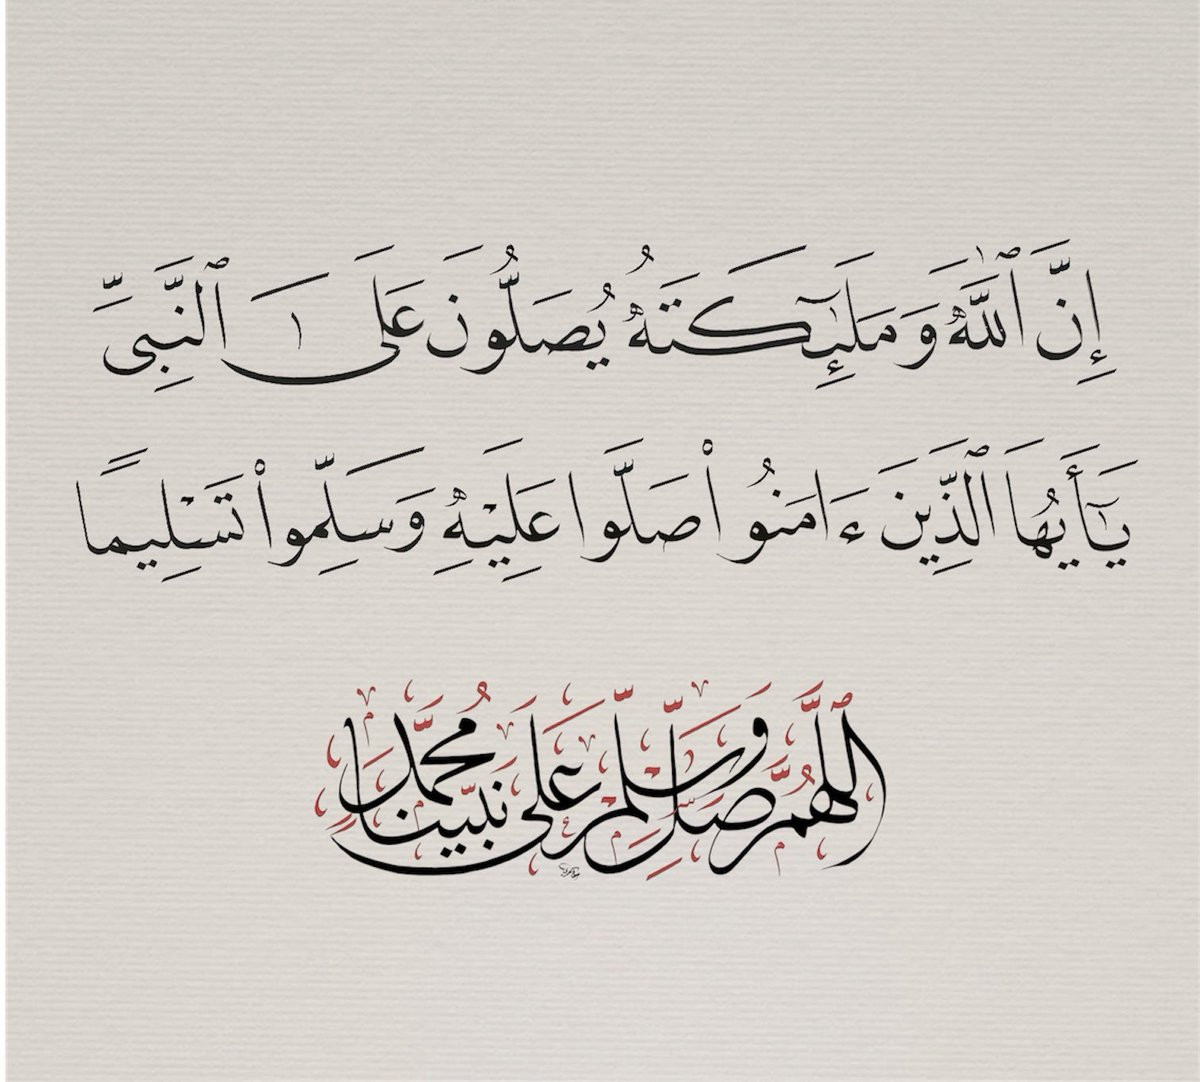 إِنَّ ٱللَّهَ وَمَلَـٰٓئِكَتَهُ يُصَلُّونَ عَلَى ٱلنَّبِىِّ
يَـٰٓأَيُّهَا ٱلَّذِينَ ءَامَنُوا۟ صَلُّوا عَلَيْهِ وَسَلِّمُوا۟ تَسْلِيمًا
اللَّهُمَّ صَلِّ وَسَلِّمْ عَلَى نَبِيِّنَا مُحَمَّدٍ